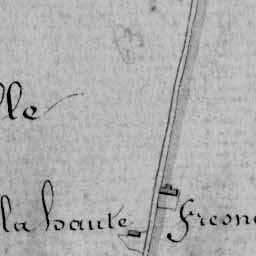 lle
la haute Fresn